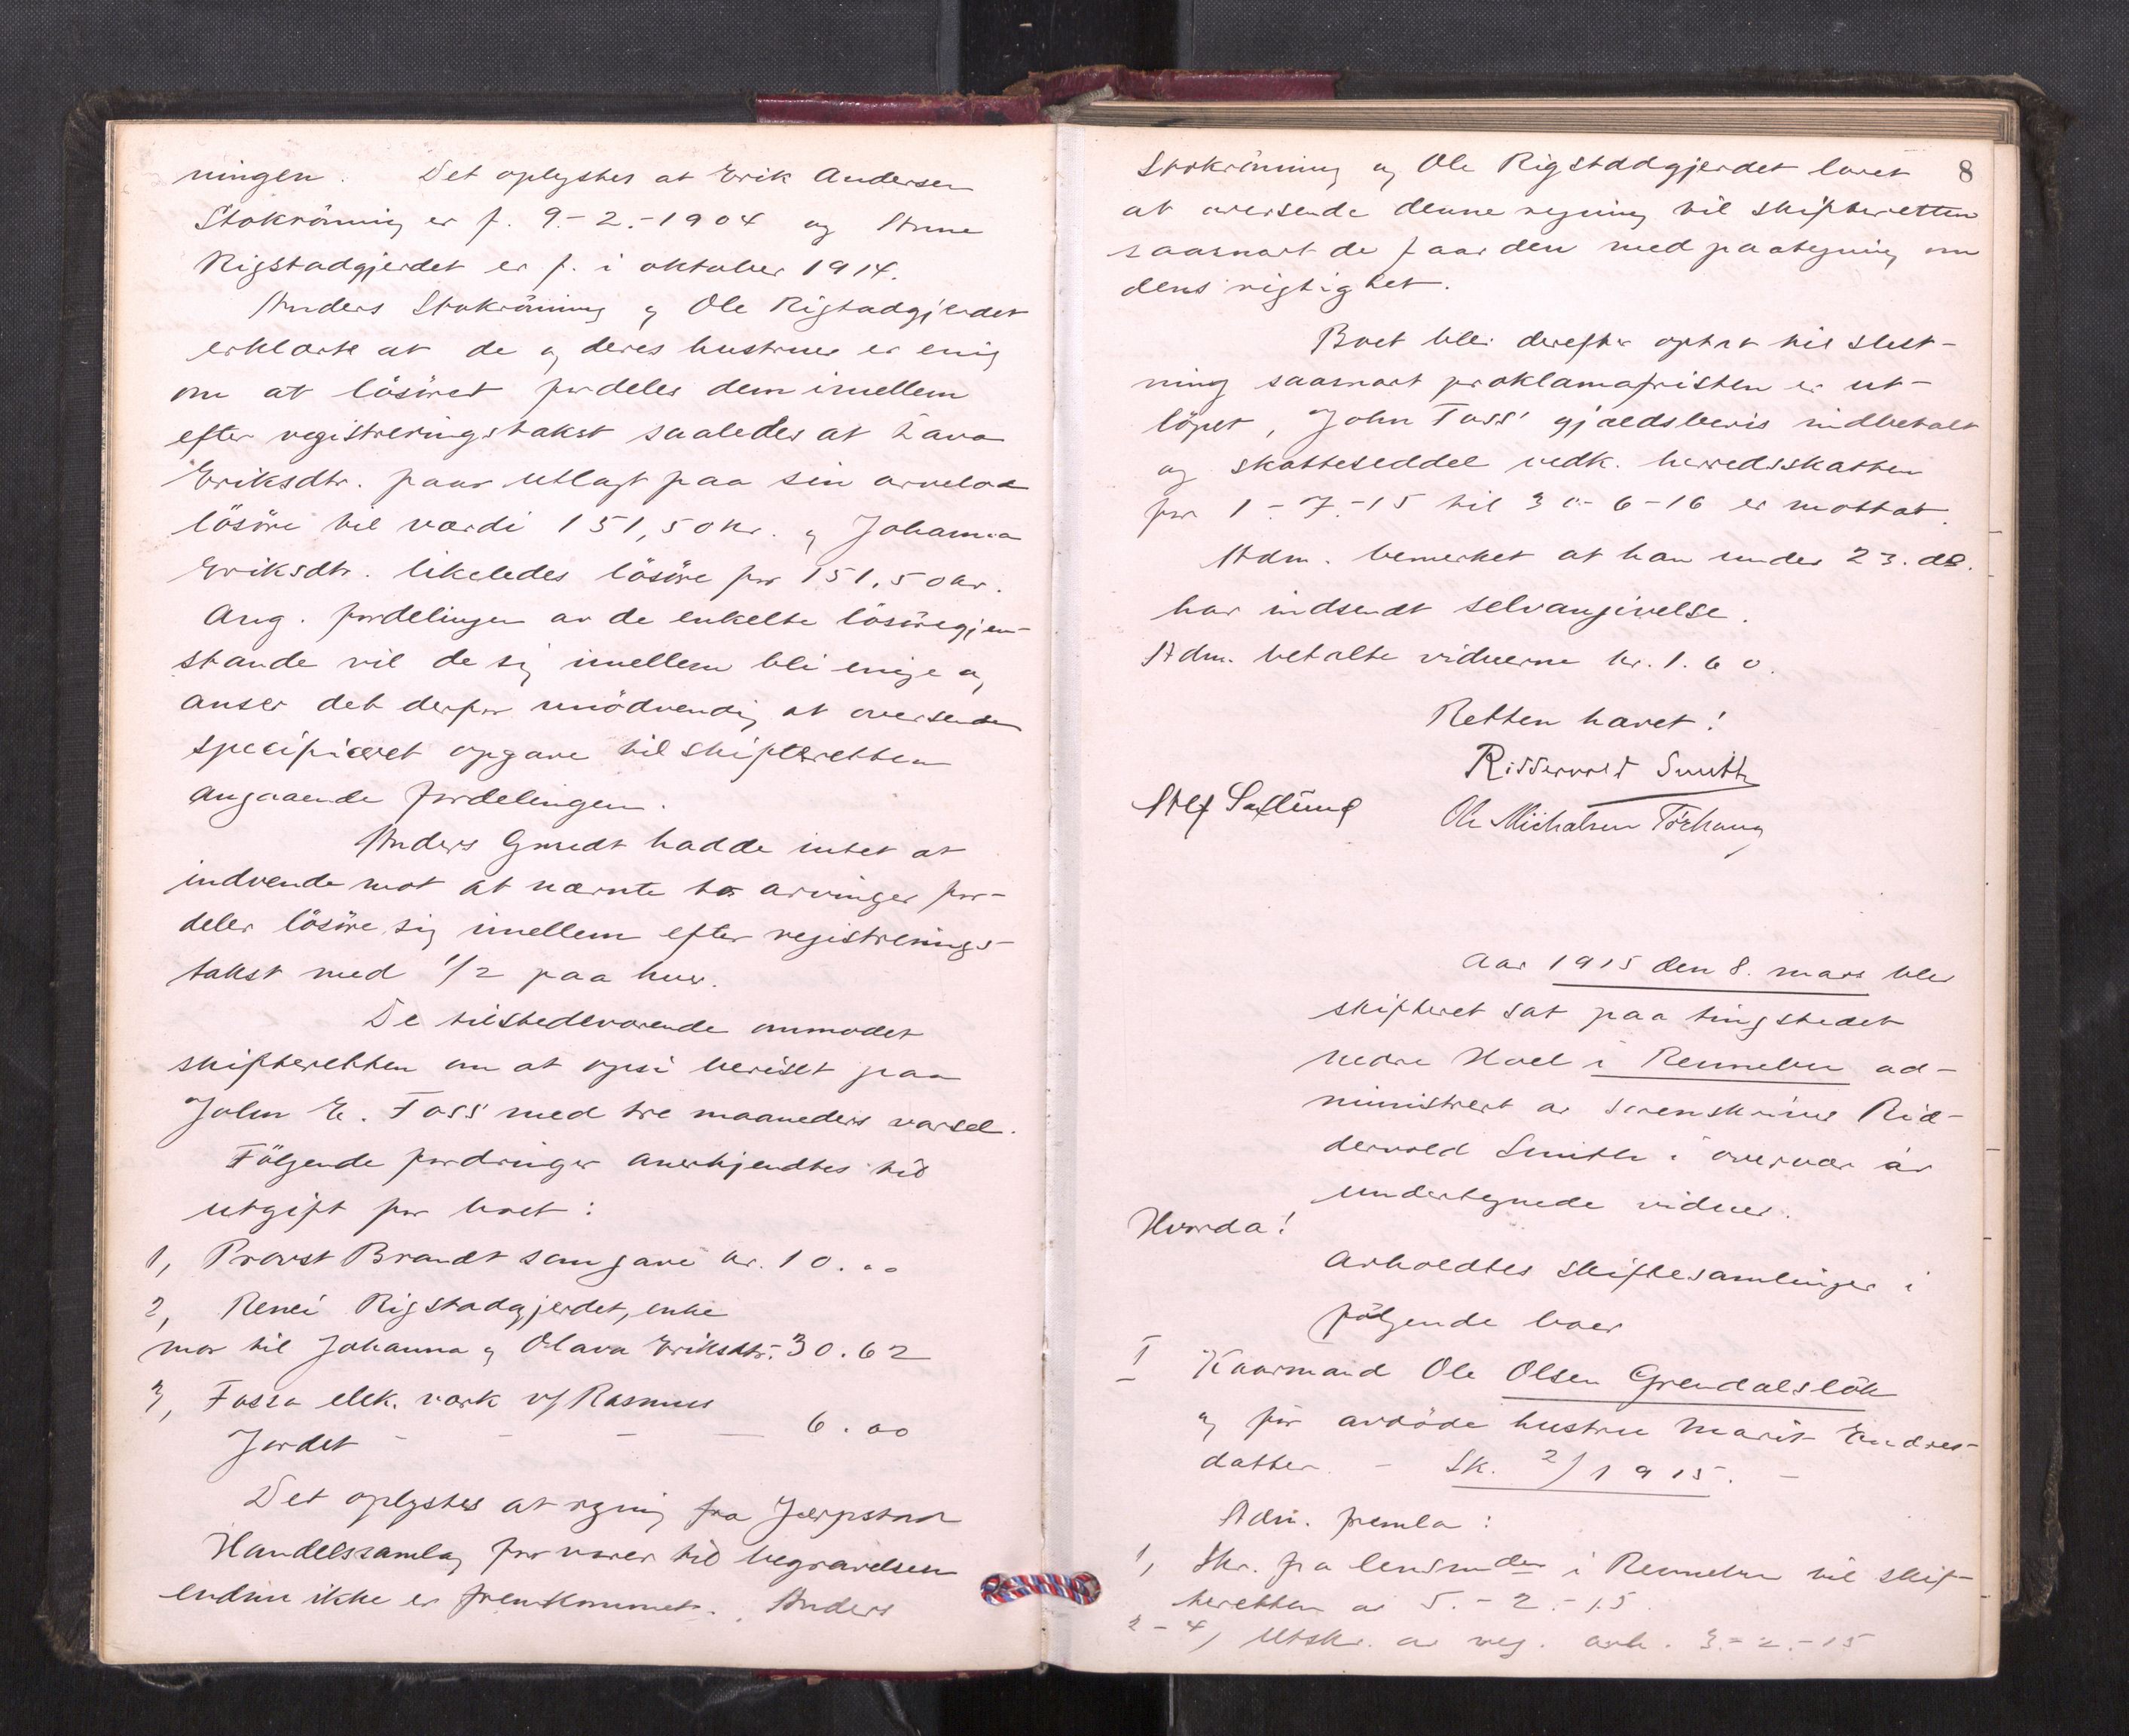 ningen. Det oplystes at Erik Andersen
Stokrönning er f. 9.-2.-1904 og Anne
Rigstadgjerdet er f. i oktober 1914.
Anders Stokrönning og Ole Rigstadgjerdet
erklærte at de og deres hustruer er enig
om at lösöret fordeles dem imellem
efter registreringstakst saaledes at Lava
Eriksdtr. faar utlagt paa sin arvelod
lösöre til værdi 151,50 kr. og Johanna
Eriksdtr. likeledes lösöre for 151.50 kr.
Ang. fordelingen av de enkelte lösöregjen-
stande vil de sig imellem bli enige og
anser det derfor unödvendig at oversende
specificeret opgave til skifteretten
angaaende fordelingen.
Anders Gunedt hadde intet at
indvende mot at nævnte to arvinger for-
deler lösöre sig imellem efter registrerings-
takst med 1/2 paa hver.
De tilstedeværende anmodet
skifteretten om at opsi beviset paa
John E. Foss med tre maaneders varsel.
Fölgende fordringer anerkjendtes til
utgift for boet:
1, Provst Brandt som gave kr. 10.00
2, Renei Rigstadgjerdet, enke
mor til Johanna og Olava Eriksdtr. 30.62
3, Fossa elek. værk v/ Rasmus
Jordet - - - 6.00
Det oplystes at regning fra Jerpstad
Handelssamlag for varer til begravelsen
endnu ikke er fremkommet. Anders
8
Stokrönning og Ole Rigstadgjerdet lovet
at oversende denne regning til skifteretten
saasnart de faar den med paategning om
dens rigtighet.
Boet blev derefter optat til slut-
ning saasnart proklamafristen er ut-
löpet, John Foss' gjældsbevis indbetalt
og skatteseddel vedk. herredsskatten
for 1-7-15 til 30-6-16 er mottat.
Adm. bemerket at han under 23. ds.
har indsendt selvangivelse.
Adm. betalte vidnerne kr. 1.60.
Retten hævet!
Riddervold Smith
Ole Michalsen Törhaug
Aar 1915 den 8. mars blev
skifteret sat paa tingstedet
nedre Hoel i Rennebu ad-
ministrert av sorenskriver Rid-
dervold Smith i overvær av
undertegnede vidner.
Hvorda!
avholdtes skiftesamlinger i
fölgende boer
I Kaarmand Ole Olsen Grendalslök
og för avdöde hustru Marit Endres-
datter. - Sk. 2/1915. -
Adm. fremla:
1, Skr. fra lensmden i Rennebu til skif-
teretten av 5.-2.-15.
2-4, Utskr. av reg. avh. 3.-2.-15